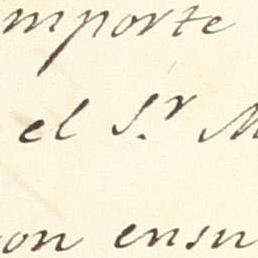 importe
el S.r M
con ensu